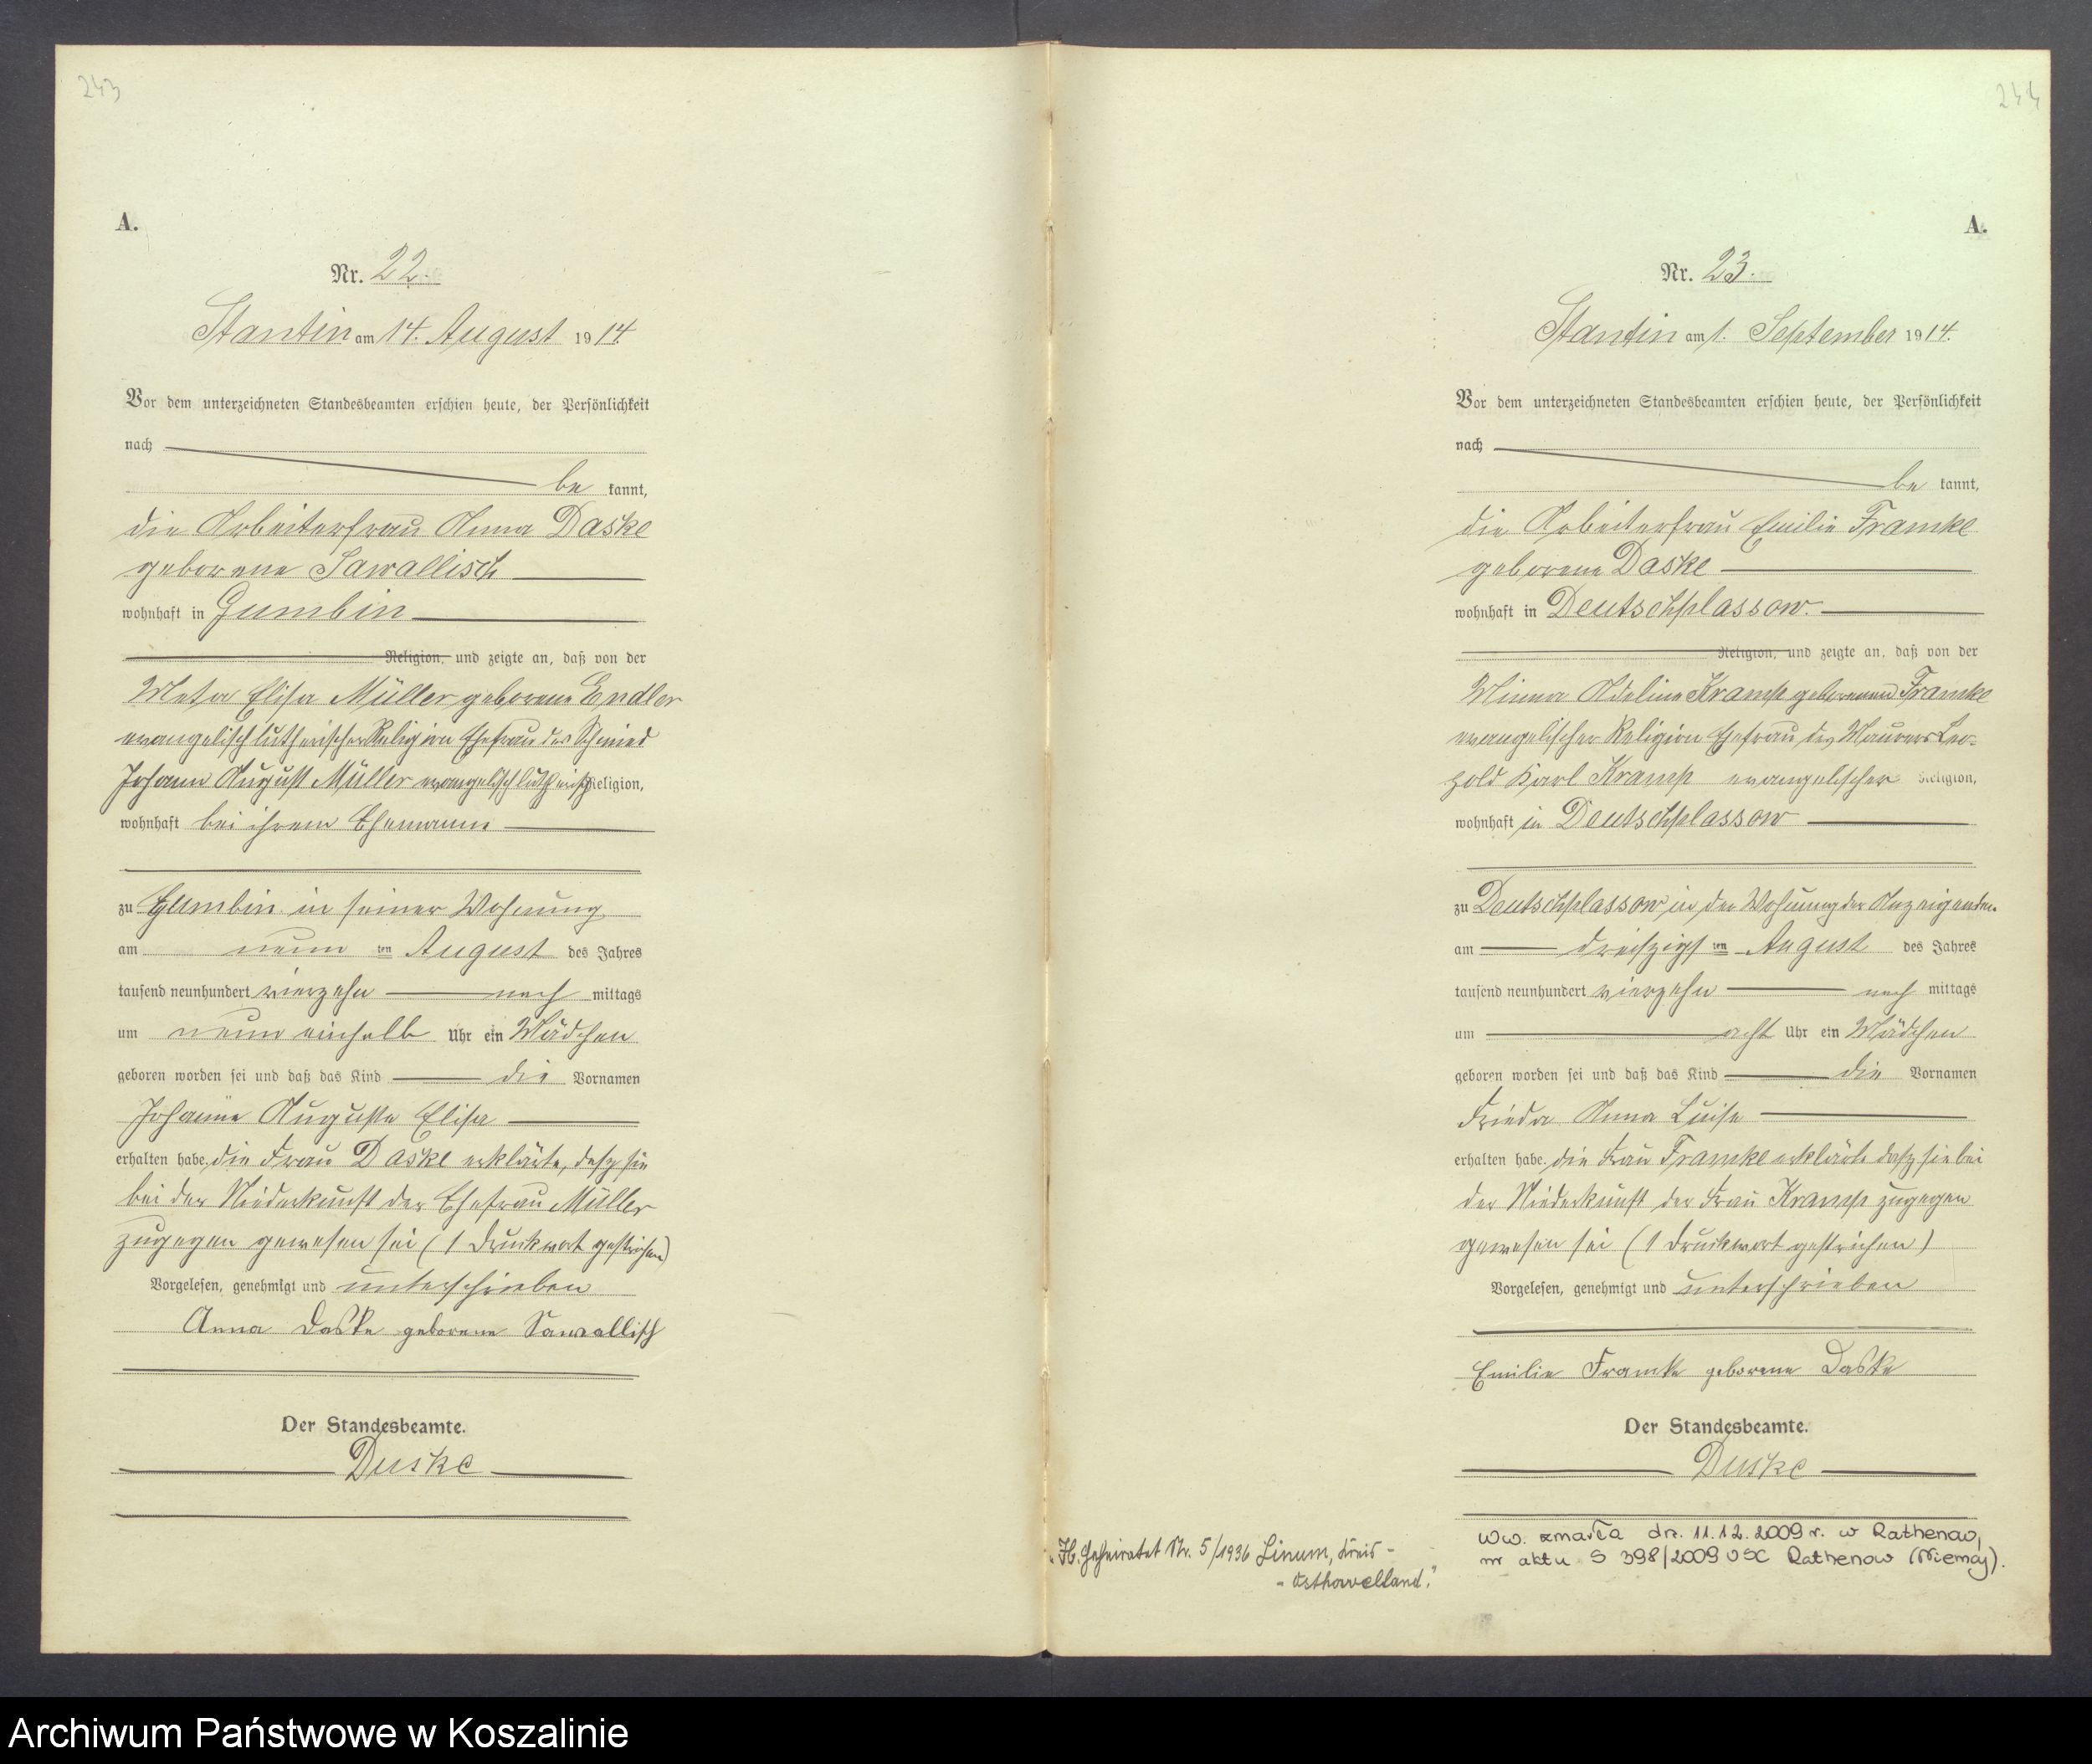 243
A.
Nr. 22.
Stantin am 14. August 1914.
Vor dem unterzeichneten Standesbeamten erschien heute, der Persönlichkeit
nach
be kannt,
die Arbeiterfrau Anna Daske
geborene Sawallisch
wohnhaft in Gumbin
Religion, und zeigte an, daß von der
Meta Elisa Müller geborene Endler
evangelisch lutherischer Religion Ehefrau des Schmied
Johann August Müller evangelisch lutherisch Religion,
wohnhaft bei ihrem Ehemanne
zu Gumbin in seiner Wohnung
am neun ten August des Jahres
tausend neunhundert vierzehn nach mittags
um neun einhalb Uhr ein Mädchen
geboren worden sei und daß das Kind die Vornamen
Johanne Auguste Elisa
erhalten habe. die Frau Daske erklärte, dasz sie
bei der Niederkunft der Ehefrau Müller
zugegen gewesen sei (1 Druckwort gestrichen)
Vorgelesen, genehmigt und unterschrieben
Anna Daske geborene Sawallisch
Der Standesbeamte.
Duske
244
A.
Nr. 23.
Stantin am 1. September 1914.
Vor dem unterzeichneten Standesbeamten erschien heute, der Persönlichkeit
nach
be kannt,
die Arbeiterfrau Emilie Framke
geborene Daske
wohnhaft in Deutschplassow.
Religion, und zeigte an, daß von der
Minna Adeline Kramp geborenen Framke
evangelischer Religion Ehefrau des Maurers Leo-
pold Karl Kramp evangelischer Religion,
wohnhaft in Deutschplassow
zu Deutschplassow in der Wohnung der Anzeigenden
am dreiszigs ten August des Jahres
tausend neunhundert vierzehn nach mittags
um acht Uhr ein Mädchen
geboren worden sei und daß das Kind die Vornamen
Frieda Anna Luise
erhalten habe. die Frau Framke erklärte dasz sie bei
der Niederkunft der Frau Kramp zugegen
gewesen sei (1 Druckwort gestrichen)
Vorgelesen, genehmigt und unterschrieben
Emilie Framke geborene Daske
Der Standesbeamte.
Duske
Ww. zmarła dn. 11.12.2009 r. w Rathenow,
nr aktu S 398/2009 USC Rathenow (Niemcy).
Geheiratet Nr. 5/1936 Linum, Kreis -
- Osthavelland."
Archiwum Państwowe w Koszalinie